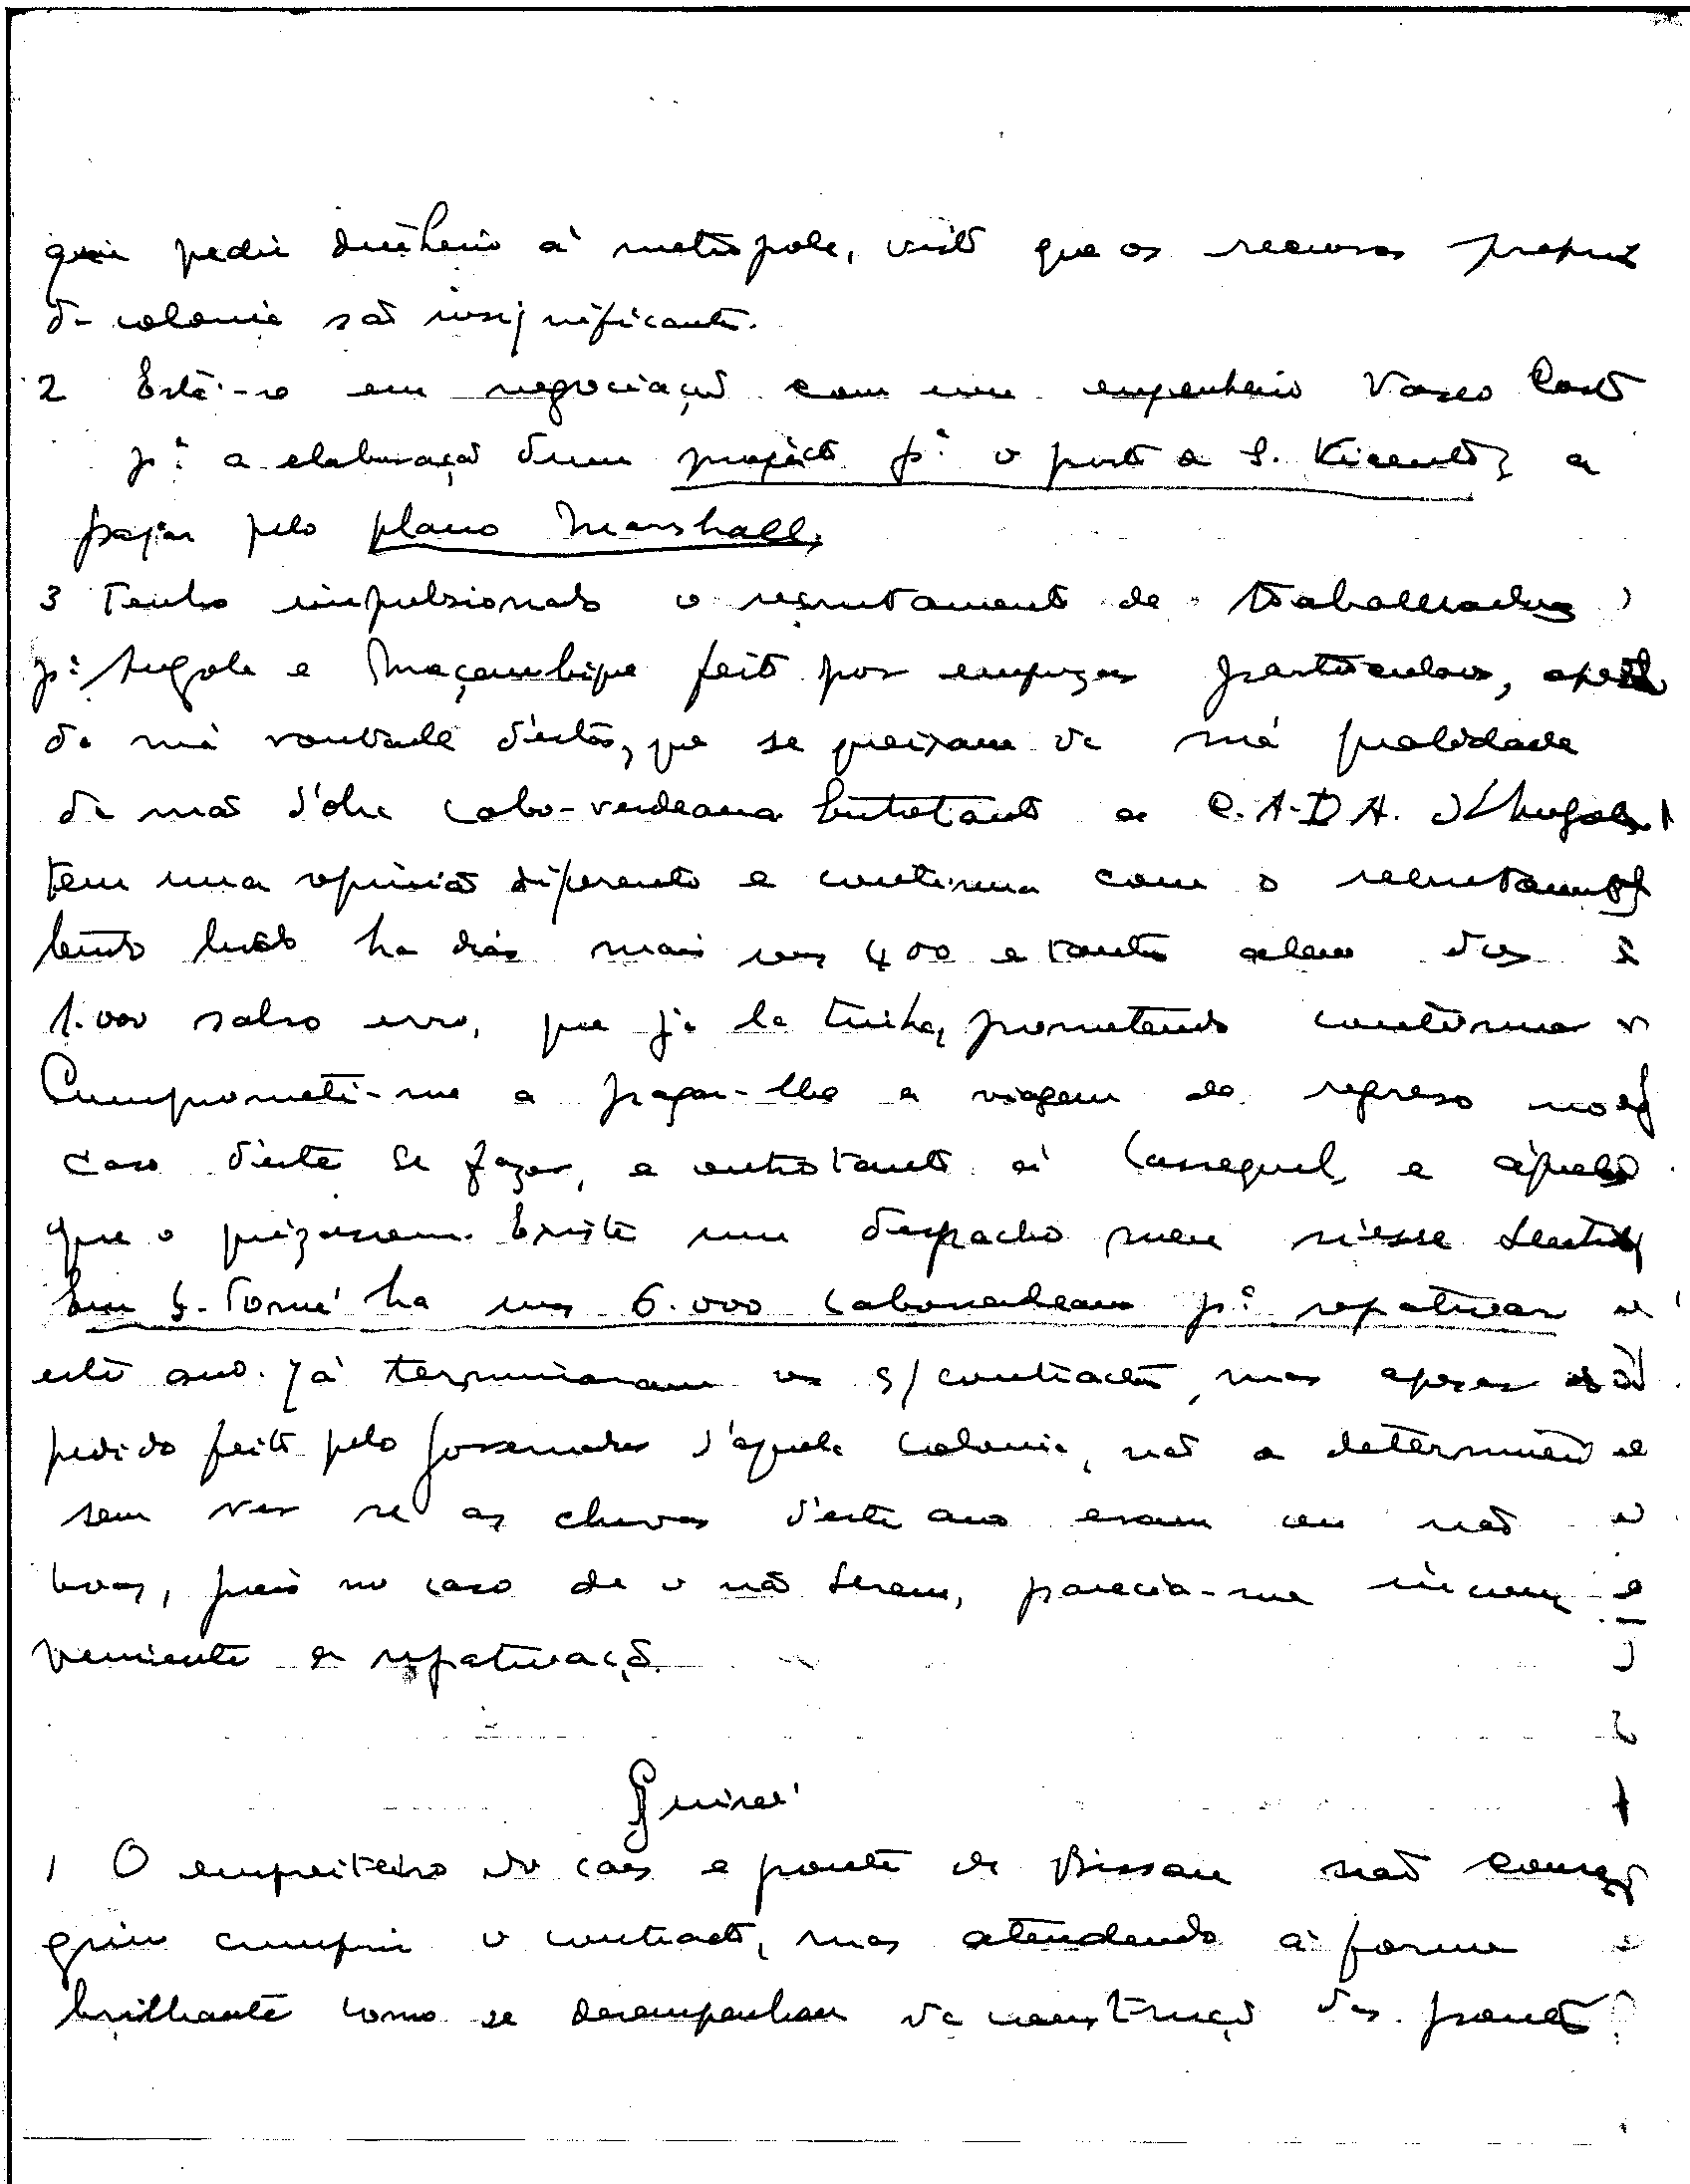 guir pedir dinheiro á metropole, visto que os recursos proprios
da colonia são insignificantes.
2 Está-se em negociação com um engenheiro Vasco Costa
pª a elaboração dum projecto pª o porto de S. Vicente, a
pagar pelo plano Marshall.
3 Tenho impulsionado o recrutamento de trabalhadores
pª Angola e Moçambique feito por emprezas particulares, apesar
da má vontade d'estas, que se queixam da má qualidade
da mão d'obra cabo-verdeana. Entretanto a C.A.D.A. d'Angola
tem uma opinião diferente e continua com o recrutamento
tendo levado ha dias mais uns 400 e tantos alem dos
1.000 salvo erro, que já la tinha, prometendo continuar
Comprometi-me a pagar-lhe a viagem de regresso no
caso d'este se fazer, e entretanto á Cassequel, e áquelas
que o quizessem. Existe um despacho meu n'esse sentido
Em S. Tomé ha uns 6.000 caboverdeanos pª repatriar
este ano. Já terminaram os s/ contractos, mas apesar do
pedido feito pelo Governador d'aquela colonia, não a determinei
sem ver se as chuvas d'este ano eram ou não
boas, pois no caso de o não serem, parecia-me incon
veniente a repatriação.
Guiné
1 O empreiteiro do caes e ponte de Bissau não conse
guiu cumprir o contracto, mas atendendo á forma
brilhante como se desempenhou da construção das pontes